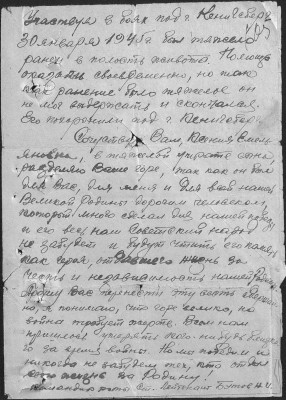 Участвуя в боях под г. Кенигсберг
30 января 1945 г был тяжело
ранен в полость живота. Помощь
оказали своевременно, но так
как ранение было тяжелое он
не мог выдержать и скончался.
Его похоронили под г. Кенигсберг.
Сочувствую Вам, Ксения Емель
яновна, в тяжелой утрате сына,
разделяю Ваше горе, так как он был
для Вас, для меня и для всей нашей
Великой родины дорогим человеком,
который много сделал для нашей победы
и его весь наш Советский народ
не забудет и будут чтить его память
как героя, отдавшего жизнь за
честь и независимость нашей Родины.
Прошу Вас перенести эту весть
но, я понимаю, что горе велико, но
война требует жертв. Всем нам
пришлось утерять кого-нибудь
за время войны. Но мы победим и
никогда не забудем тех, кто отдал
свою жизнь за Родину!
Командир ст. лейтенант